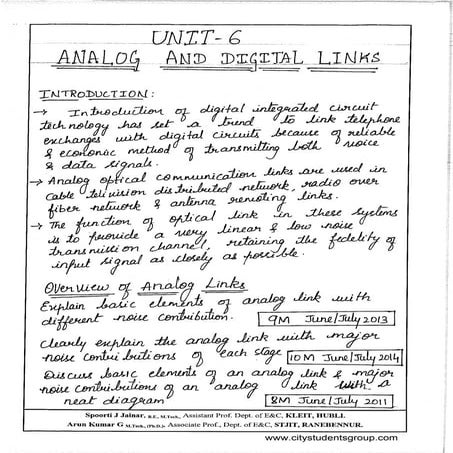 UNIT-6
ANALOG AND DIGITAL LINKS
INTRODUCTION:
→ Introduction of digital integrated circuit
technology has set a trend to link telephone
exchanges with digital circuits because of reliable
& economic method of transmitting both voice
& data signals.
→ Analog optical communication links are used in
cable television distributed network, radio over
fiber network & antenna remoting links.
→ The function of optical link in these systems
is to provide a very linear & low noise
transmission channel, retaining the fidelity of
input signal as closely as possible.
Overview of Analog Links
Explain basic elements of analog link with
different noise contribution. 9M June/July 2013
Clearly explain the analog link with major
noise contributions of each stage 10M June/July 2014
Discuss basic elements of an analog link & major
noise contributions of an analog link with a
neat diagram 8M June/July 2011
Spoorti J Jainar, B.E., M.Tech., Assistant Prof. Dept. of E&C, KLEIT, HUBLI.
Arun Kumar G M.Tech., (Ph.D.), Associate Prof., Dept. of E&C, STJIT, RANEBENNUR.
www.citystudentsgroup.com